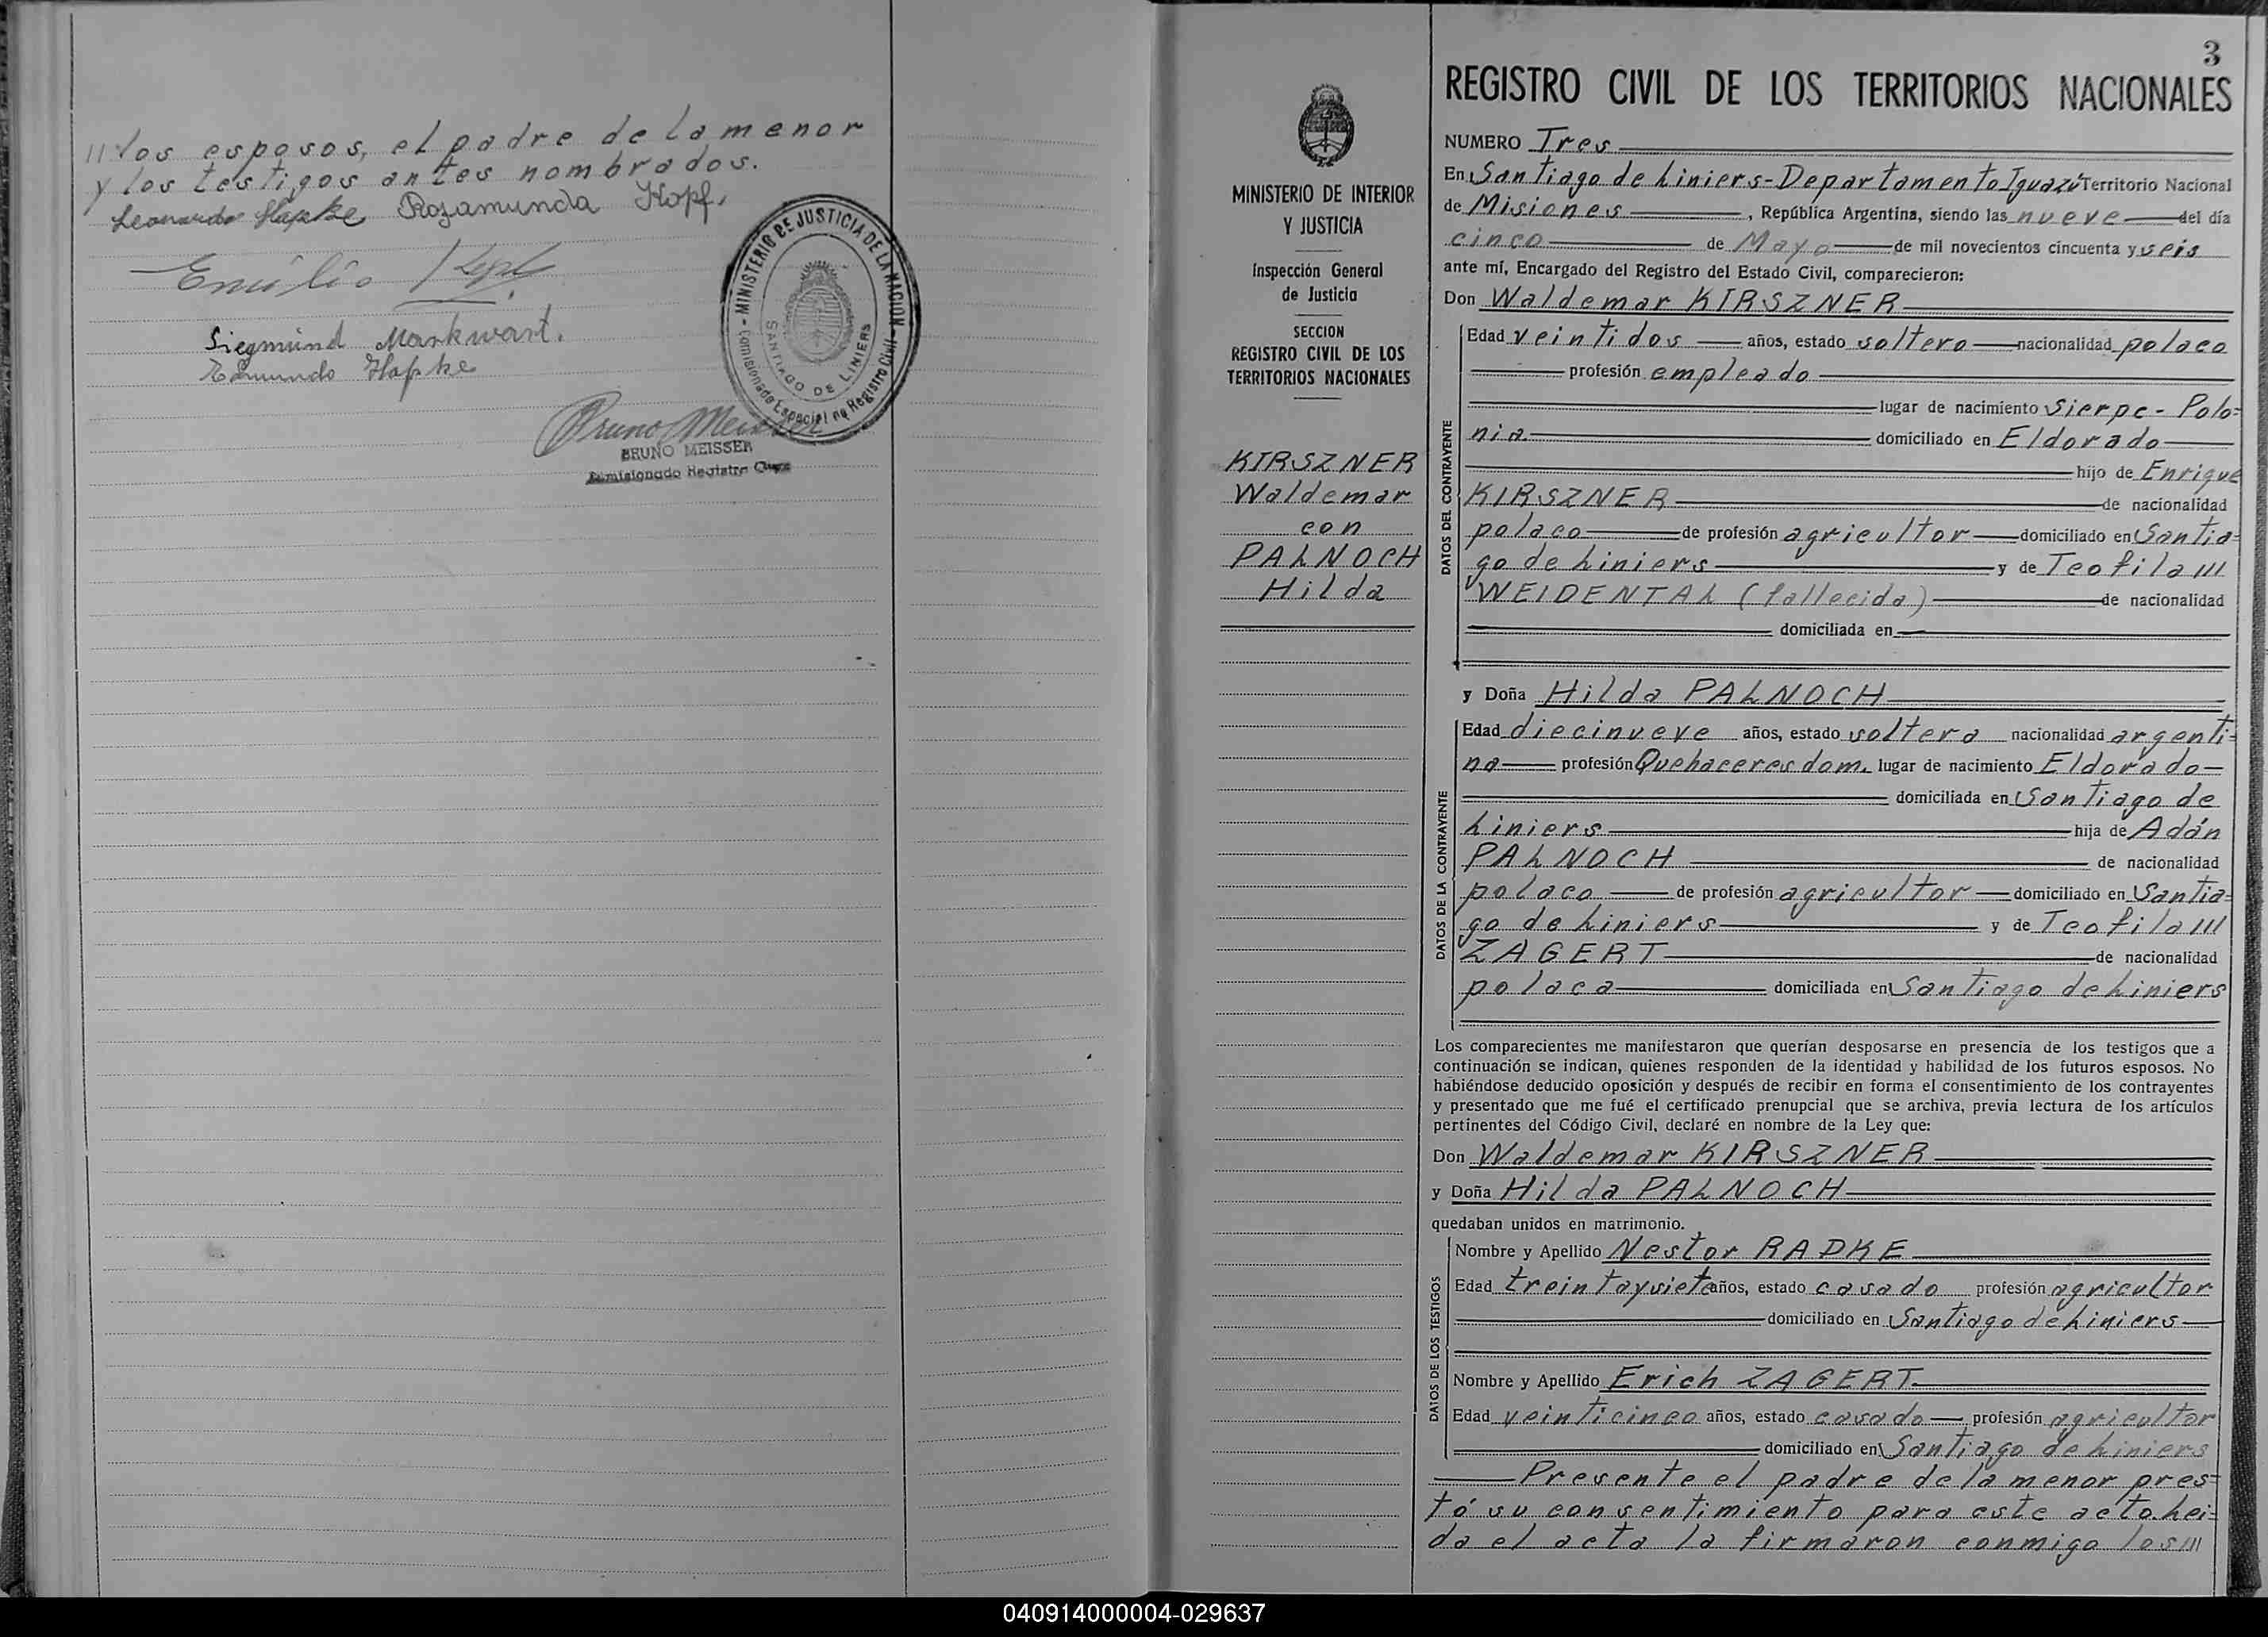 // los esposos, el padre de la menor
y los testigos antes nombrados.
Leonardo Hapke Rozamunda Kopf.
Emilio Kopf
Siegmund Markwart.
Edmundo Hapke
MINISTERIO DE JUSTICIA DE LA NACION
SANTIAGO DE LINIERS
Comisionado Especial no Registro Civil
Bruno Meisser
BRUNO MEISSER
Comisionado Registro Civil
MINISTERIO DE INTERIOR
Y JUSTICIA
Inspección General
de Justicia
SECCION
REGISTRO CIVIL DE LOS
TERRITORIOS NACIONALES
KIRSZNER
Waldemar
con
PALNOCH
Hilda
3
REGISTRO CIVIL DE LOS TERRITORIOS NACIONALES
NUMERO Tres
En Santiago de Liniers-Departamento Iguazú Territorio Nacional
de Misiones, República Argentina, siendo las nueve del día
cinco de Mayo de mil novecientos cincuenta y seis
ante mí, Encargado del Registro del Estado Civil, comparecieron:
Don Waldemar KIRSZNER
DATOS DEL CONTRAYENTE
Edad veintidos años, estado soltero nacionalidad polaco
profesión empleado
lugar de nacimiento Sierpc - Polo=
nia domiciliado en Eldorado
hijo de Enrique
KIRSZNER de nacionalidad
polaco de profesión agricultor domiciliado en Santia=
go de Liniers y de Teofila ///
WEIDENTAL (fallecida) de nacionalidad
domiciliada en
y Doña Hilda PALNOCH
DATOS DE LA CONTRAYENTE
Edad diecinueve años, estado soltera nacionalidad argenti=
na profesión Quehaceres dom. lugar de nacimiento Eldorado
domiciliada en Santiago de
Liniers hija de Adán
PALNOCH de nacionalidad
polaco de profesión agricultor domiciliado en Santia=
go de Liniers y de Teofila ///
ZAGERT de nacionalidad
polaca domiciliada en Santiago de Liniers
Los comparecientes me manifestaron que querían desposarse en presencia de los testigos que a
continuación se indican, quienes responden de la identidad y habilidad de los futuros esposos. No
habiéndose deducido oposición y después de recibir en forma el consentimiento de los contrayentes
y presentado que me fué el certificado prenupcial que se archiva, previa lectura de los artículos
pertinentes del Código Civil, declaré en nombre de la Ley que:
Don Waldemar KIRSZNER
y Doña Hilda PALNOCH
quedaban unidos en matrimonio.
DATOS DE LOS TESTIGOS
Nombre y Apellido Nestor RADKE
Edad treintaysiete años, estado casado profesión agricultor
domiciliado en Santiago de Liniers
Nombre y Apellido Erich ZAGERT
Edad veinticinco años, estado casado profesión agricultor
domiciliado en Santiago de Liniers
Presente el padre de la menor pres=
tó su consentimiento para este acto. Lei=
da el acta la firmaron conmigo los ///
040914000004-029637